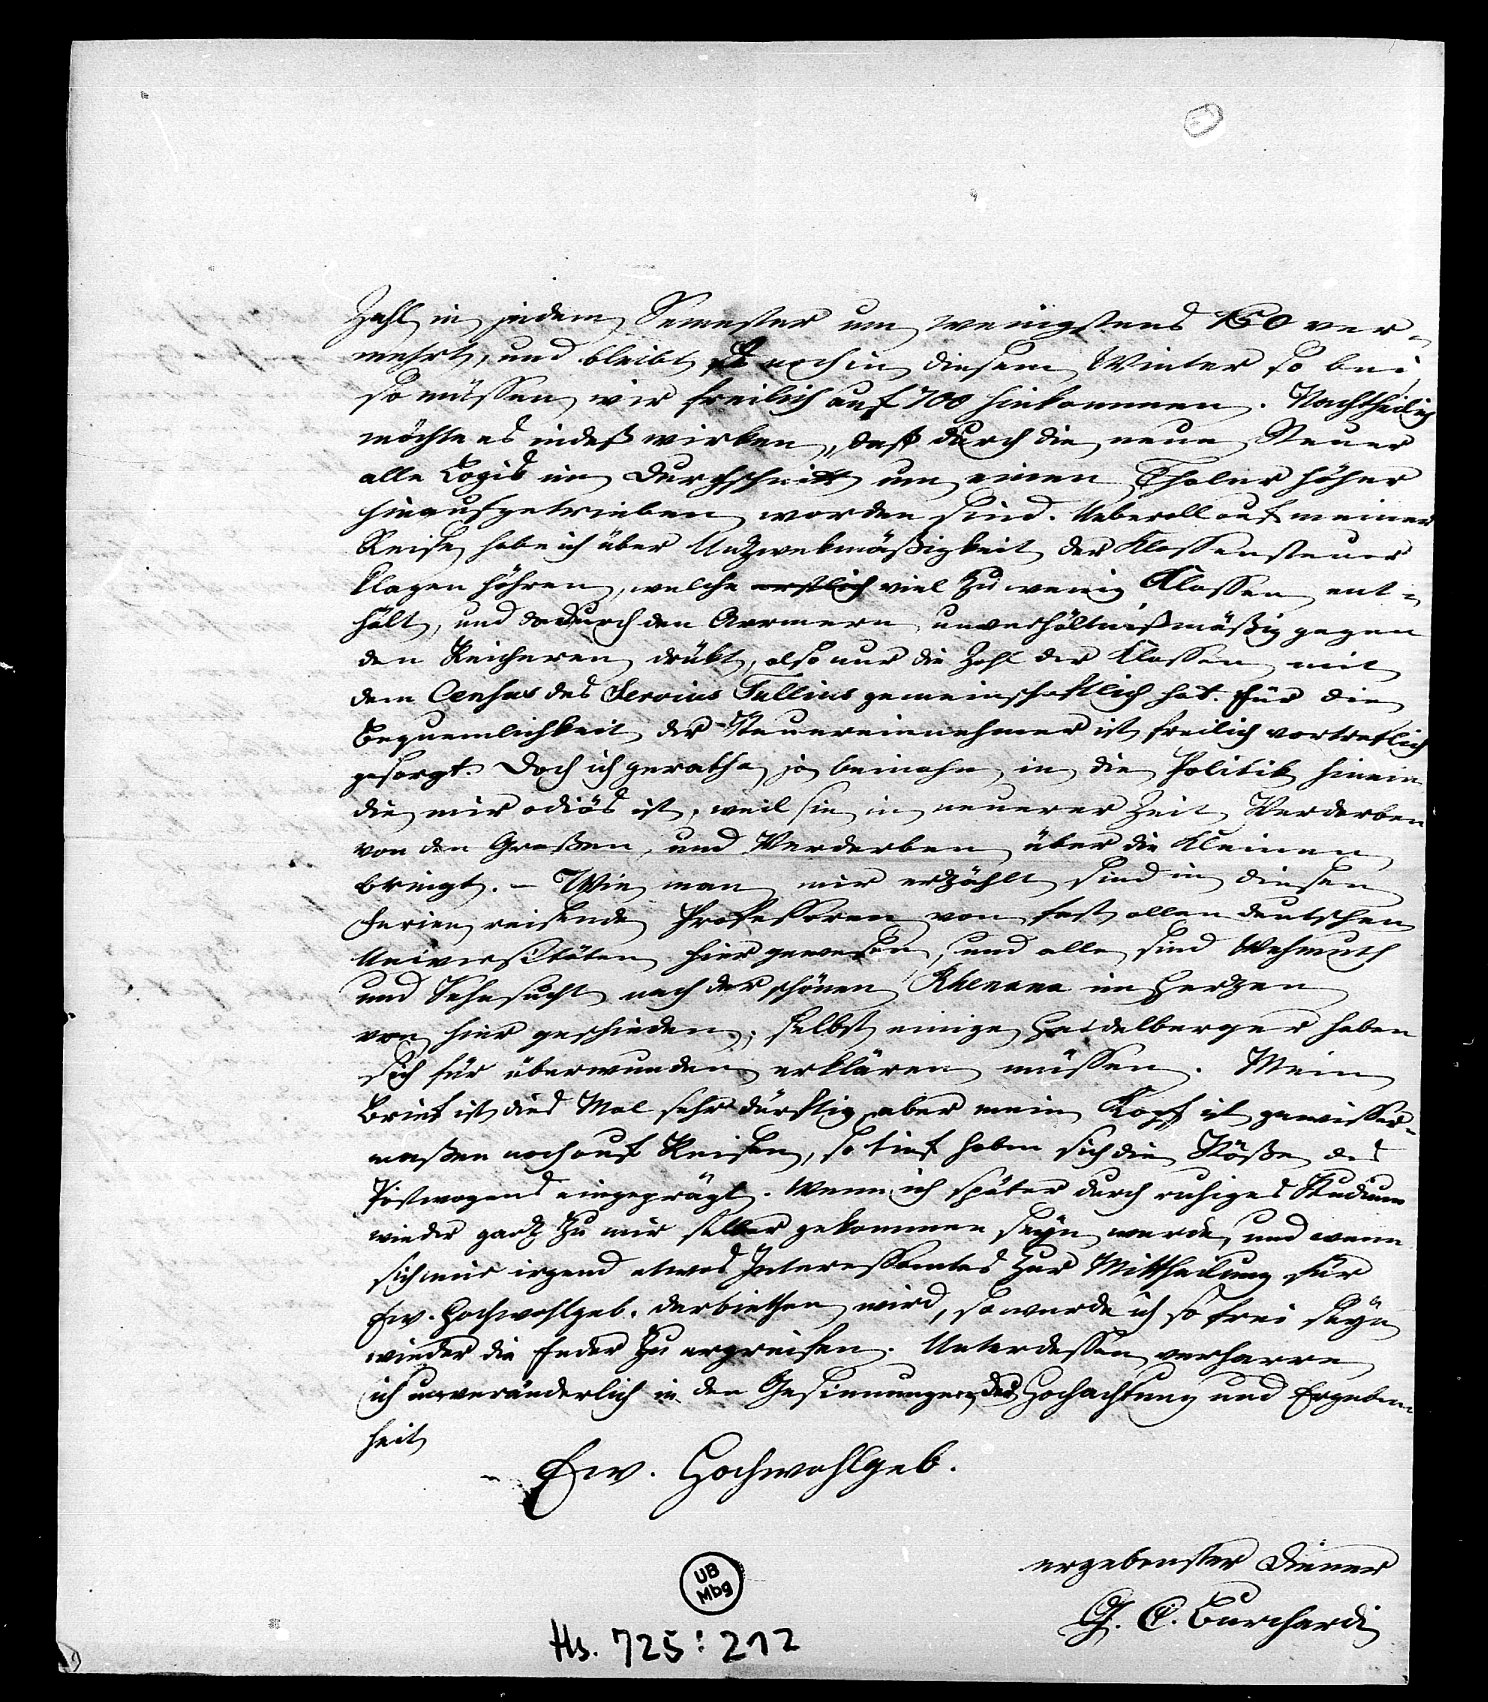 Zahl in jedem Semester um wenigstens 150 ver-
mehrt, und bleibt es noch in diesem Winter so bei,
so müssen wir freilich auf 700 hinkommen. Nachtheilig
möchte es indeß wirken, daß durch die neue Steuer
alle Logis im Durchschnitt um einen Thaler höher
hinaufgetrieben worden sind. Ueberall auf meiner
Reise habe ich über Unzwekmäßigkeit der Klassensteuer
klagen höhren, welche erstlich viel zu wenig Klassen ent-
hält, und dadurch den Aermern unverhältnißmäßig gegen
den Reicheren drükt, also nur die Zahl der Klassen mit
dem Census des Servius Tullius gemeinschaftlich hat. Für die
Bequemlichkeit der Steuereinnehmer ist freilich vortreflich
gesorgt. Doch ich gerathe ja beinahe in die Politik hinein
die mir odiös ist, weil sie in neuerer Zeit Verderben
von den Großen, und Verderben über die Kleinen
bringt. – Wie man mir erzählt sind in diesen
Ferien reisende Professoren von fast allen deutschen
Universitäten hier gewesen, und alle sind Wehmuth
und Sehnsucht nach der schönen Rhenana im Herzen
von hier geschieden; selbst einige Heidelberger haben
sich für überwunden erklären müssen. Mein
Brief ist dies Mal sehr dürftig, aber mein Kopf ist gewisser-
maßen noch auf Reisen, so tief haben sich die Stöße des
Postwagens eingeprägt. Wenn ich später durch ruhiges Studium
wieder ganz zu mir selber gekommen seyn werde, und wenn
sich mir irgend etwas Interessantes zur Mittheilung für
Ew. Hochwohlgeb. darbiethen wird, so werde ich so frei seyn
wieder die Feder zu ergreifen. Unterdessen verharre
ich unveränderlich in den Gesinnungen der Hochachtung und Ergeben-
heit
Ew. Hochwohlgeb.
ergebenster Diener
G. C. Burchardi
UB
Mbg
Hs. 725:212